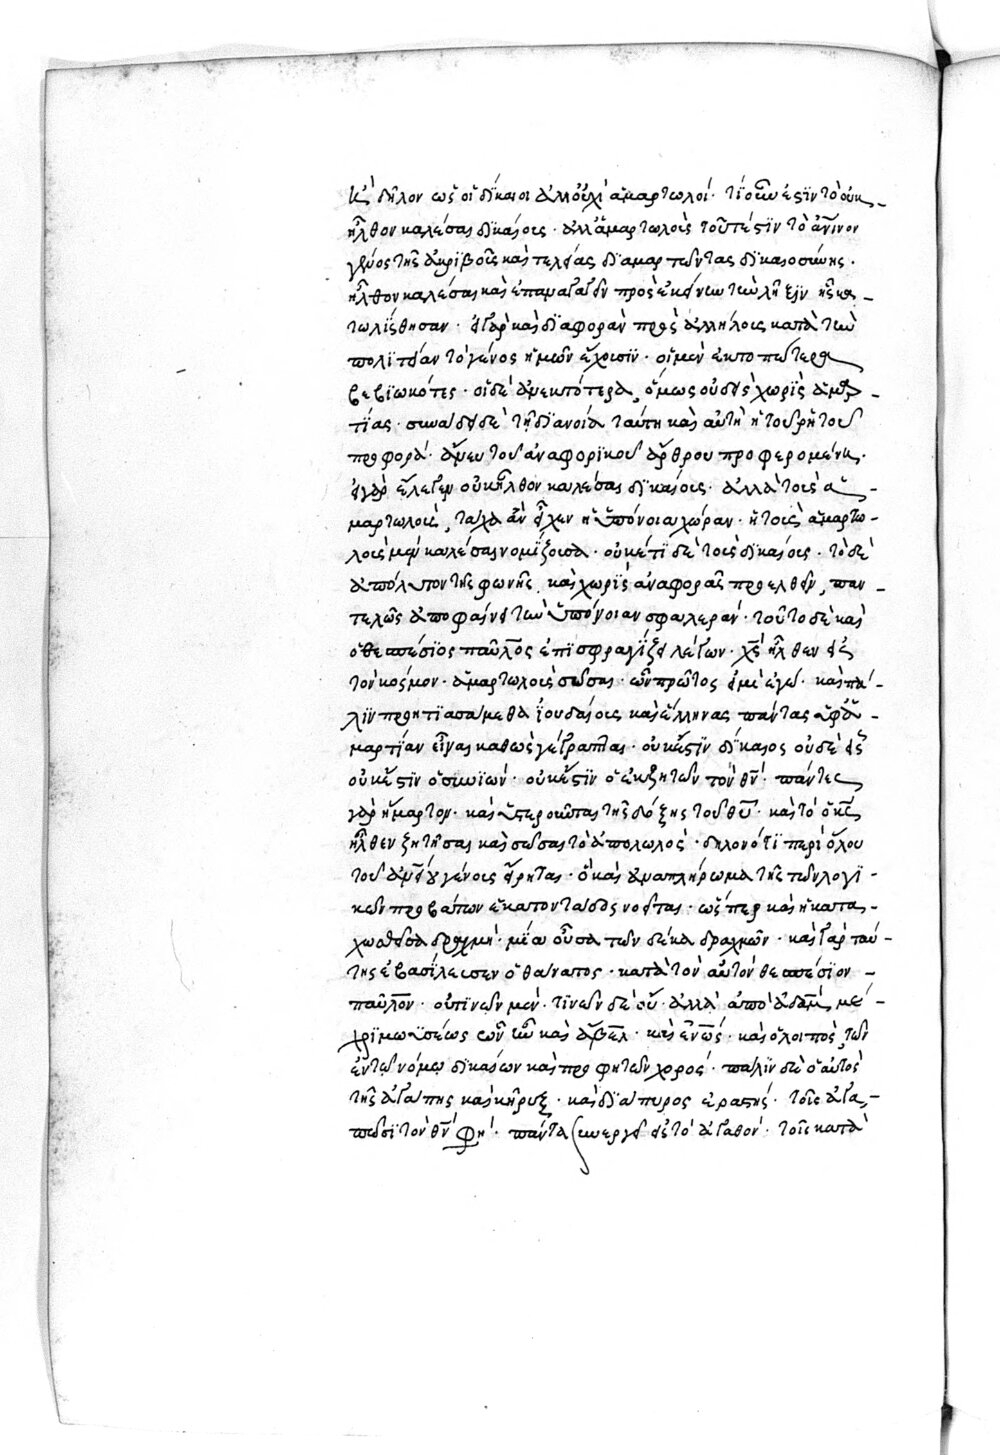 κ(αὶ) δῆλον ὡς οἱ δίκαιοι ἀλλ' οὐχὶ ἁμαρτωλοί· τί οὖν ἐστὶν τὸ οὐκ
ἦλθον καλέσαι δικαίους· ἀλλ' ἁμαρτωλούς τοῦτέστιν τὸ ἀν(θρώπ)ινον
γένος τῆς ἀκριβοῦς καὶ τελείας διαμαρτὸν τὰς δικαιοσύνης·
ἦλθον καλέσαι καὶ ἐπαναγαγεῖν πρὸς ἐκείνην τὴν λῆξιν ἧς κα
τωλίσθησαν· εἰ γὰρ καὶ διαφορὰν πρὸς ἀλλήλους κατὰ τὴν
πολιτείαν τὸ γένος ἡμῶν ἔχουσιν· οἱ μὲν ἐκτοπώτερα
βεβιωκότες· οἱ δὲ ἀνεκτότερα, ὅμως οὐδεὶς χωρὶς ἁμαρ
τίας· συνάδει δὲ τῇ διανοία ταύτη καὶ αὐτὴ ἡ τοῦ ῥητοῦ
προφορά· ἄνευ τοῦ ἀναφορικοῦ ἄρθρου προφερομένη·
εἰ γὰρ ἔλεγεν οὐκ ἦλθον καλέσαι δικαίους· ἀλλὰ τοὺς ἁ
μαρτωλούς, τάχα ἂν εἶχεν ἡ ὑπόνοια χώραν· ἡ τοὺς ἁμαρτω
λοὺς μὲν καλέσαι νομίζουσα· οὐκέτι δὲ τοὺς δικαίους· τὸ δὲ
ἀπόλυτον τῆς φωνῆς, καὶ χωρὶς ἀναφορᾶς προελθὸν, παν
τελῶς ἀποφαίνει τὴν ὑπόνοιαν σφαλεράν· τοῦτο δὲ καὶ
ὁ θεσπέσιος παῦλος ἐπισφραγίζει λέγων· χ(ριστὸ)ς ἦλθεν εἰς
τὸν κόσμον· ἁμαρτωλοὺς σῶσαι· ὧν πρῶτος εἰμὶ ἐγώ· καὶ πά
λιν προητιασάμεθα ἰουδαίους καὶ ἕλληνας πάντας ὑφ' ἁ
μαρτίαν εἶναι καθὼς γέγραπται· οὐκ ἔστιν δίκαιος οὐδὲ εἷς
οὐκ ἔστιν ὁ συνιών· οὐκ ἔστιν ὁ ἐκζητῶν τὸν θ(εό)ν· πάντες
γὰρ ἥμαρτον· καὶ ὑστεροῦνται τῆς δόξης τοῦ θ(εο)ῦ· καὶ τὸ
ἦλθεν ζητῆσαι καὶ σῶσαι τὸ ἀπολωλός· δηλονότι περὶ ὅλου
τοῦ γένους εἴρηται· ὃ καὶ ἀναπλήρωμα τῆς τῶν λογι
κῶν προβάτων ἑκατοντάδος νοεῖται· ὥσπερ καὶ ἡ κατα
χωσθεῖσα δραχμή· μία οὖσα τῶν δέκα δραχμῶν· καὶ γὰρ ταύ
της ἐβασίλευσεν ὁ θάνατος· κατὰ τὸν αὐτὸν θεσπέσιον
παῦλον· οὔ τινῶν μέν· τινῶν δὲ οὔ· ἀλλὰ ἀπὸ ἀδὰμ μέ
χρι μωϋσέως ὧν ἦν καὶ ἄβελ· καὶ ἐνώς· καὶ ὁ λοιπὸς τῶν
ἐν τῶ νόμω δικαίων καὶ προφητῶν χορός· πάλιν δὲ ὁ αὐτὸς
τῆς ἀγάπης καὶ κῆρυξ· καὶ διάπυρος ἐραστής· τοῖς ἀγα
πῶσι τὸν θ(εὸ)ν φη(σί)· πάντα συνεργεῖ εἰς τὸ ἀγαθόν· τοῖς κατὰ